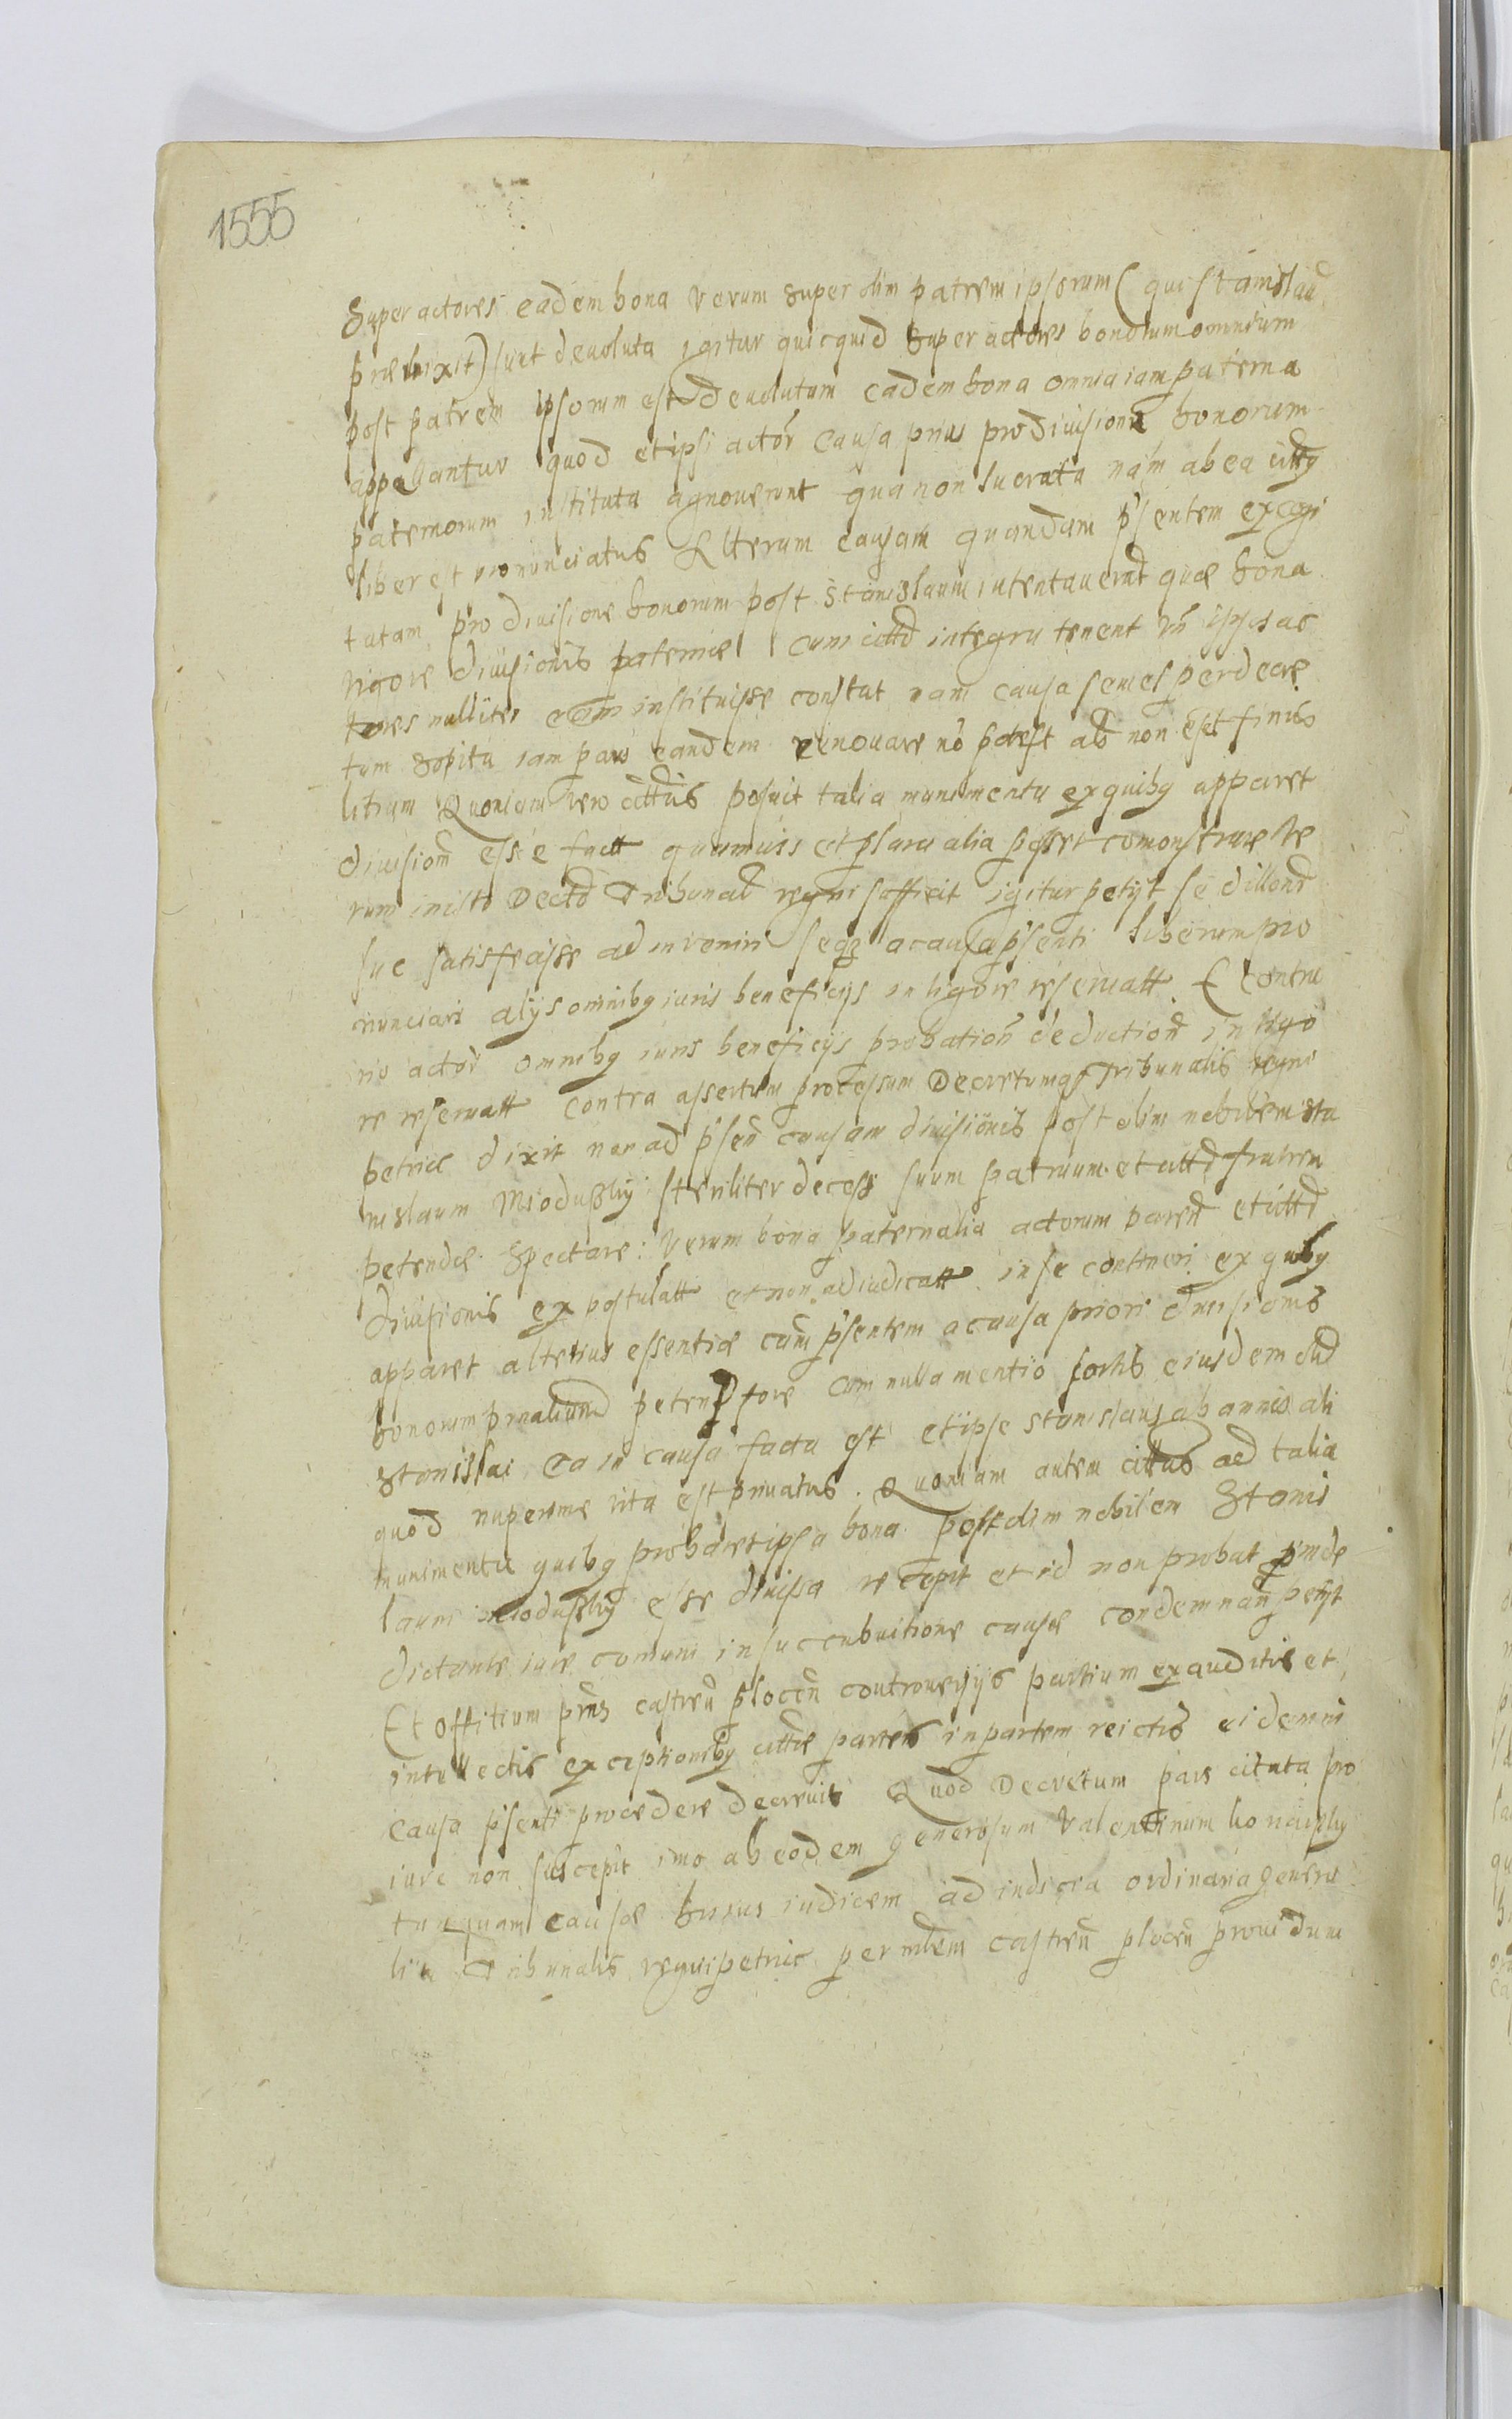 1555
Super actores eadem bona verum super olim patrem ipsorum (qui Stanislau
prævixit) sunt devoluta igitur quicquid super actores bonorum omnium
post patrem ipsorum est devolutum eadem bona omnia iam paterna
appellantur quod et ipsi actor causa prius pro divisione bonorum
paternorum instituta agnoverunt qua non lucrata nam ab ea
liber est pronunciatus alteram causam quandam psentem excogi
tatam pro divisione bonorum post Stanislaum intentaverunt quæ bona
vigore divisionis paternæ cum integra tenent ipsos ac
tores nulliter eam instituisse constat nam causa semel per decre
tum sopita iam pars eandem renovare no potest als non esset finis
litium Quoniam vero posuit talia munimenta ex quibq apparet
divisionem esse fact quamvis et plura alia posset comonstrare ve
rum in isto Tribunal regni sufficit igitur petijt se dilloni
sue satisfecisse ad inveniri seqz a causa psenti liberum pro
nunciari alijs omnibq iuris beneficijs in vigore reservatt E contra
rio actor omnibq iuris beneficijs probation deduction in vigo
re reservatt contra assertum processum Decretumq Tribunalis regni
petric dixit non ad psen causam divisionis post olim nobilem Sta
nislaum Mioduski steriliter decess suum patruum et fratrem
petendæ spectare: verum bona paternalia actorum paren et
divisionis ex postulatt et non adiudicatt in se contineri ex quibq
apparet alterius essentiæ cum psentem a causa priori divisionis
bonorum petend fore cum nulla mentio sortis eiusdem olim
Stanislai ea in causa facta est et ipse Stanislaus ab annis ali
quod nuperime vita est privatus. Quoniam autem ad talia
munimenta quibq probaret ipsa bona post olim nobilem Stanis
laum Mioduski esse divisa recepit et id non probat pinde
dictante iure comuni in succubuitione causæ condemnan petijt
Et offitium pns castren plocen controversijs partium exauditis et
intellectis exceptionibq partis in partem reictis eidem in
causa psenti procedere decrevit Quod Decretum pars citata pro
iure non suscepit imo ab eodem generosum Valentinum
tanquam causæ huius iudicem ad iudicia ordinaria genera
lia Tribunalis regni petric per castren plocen providum